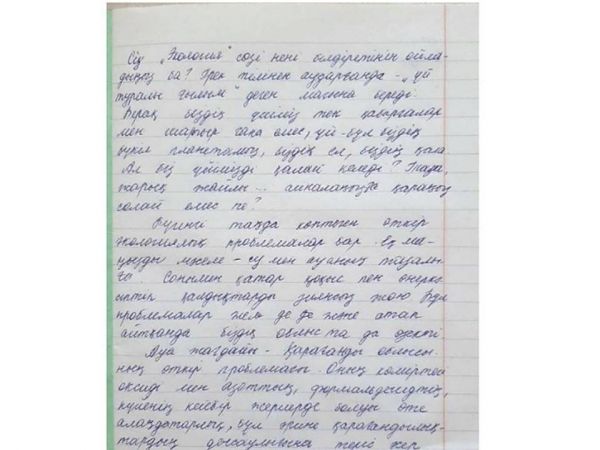 Сіз „Экология" сөзі нені білдіретінін ойла-
дыңыз ба? Грек тілінен аударғанда - „үй
туралы ғылым" деген мағына береді.
Бірақ біздің үйіміз тек қабырғалар
мен шатыр ғана емес, үй - бұл біздің
бүкіл планетамыз, біздің ел, біздің қала.
Ал біз үйімізді қалай көреміз? Таза,
жарық, жайлы... айналаңызға қараңыз
солай емес пе?
Бүгінгі таңда көптеген өткір
экологиялық проблемалар бар. Ең ма-
ңызды мәселе - су мен ауаның тазалы-
ғы. Сонымен қатар қоқыс пен өнеркә
сіптің қалдықтарды зиянсыз жою Бұл
проблемалар жел де де және атап
айтқанда біздің облыста да өзекті
Ауа жағдайы - Қарағанды облысы-
ның өткір проблемасы. Оның көміртегі
оксиді мен азоттың, формальдегидтің,
күйенің кейбір жерлерде болуы өте
алаңдатарлық, бұл және қарағандылық-
тардың денсаулығына тері әсер